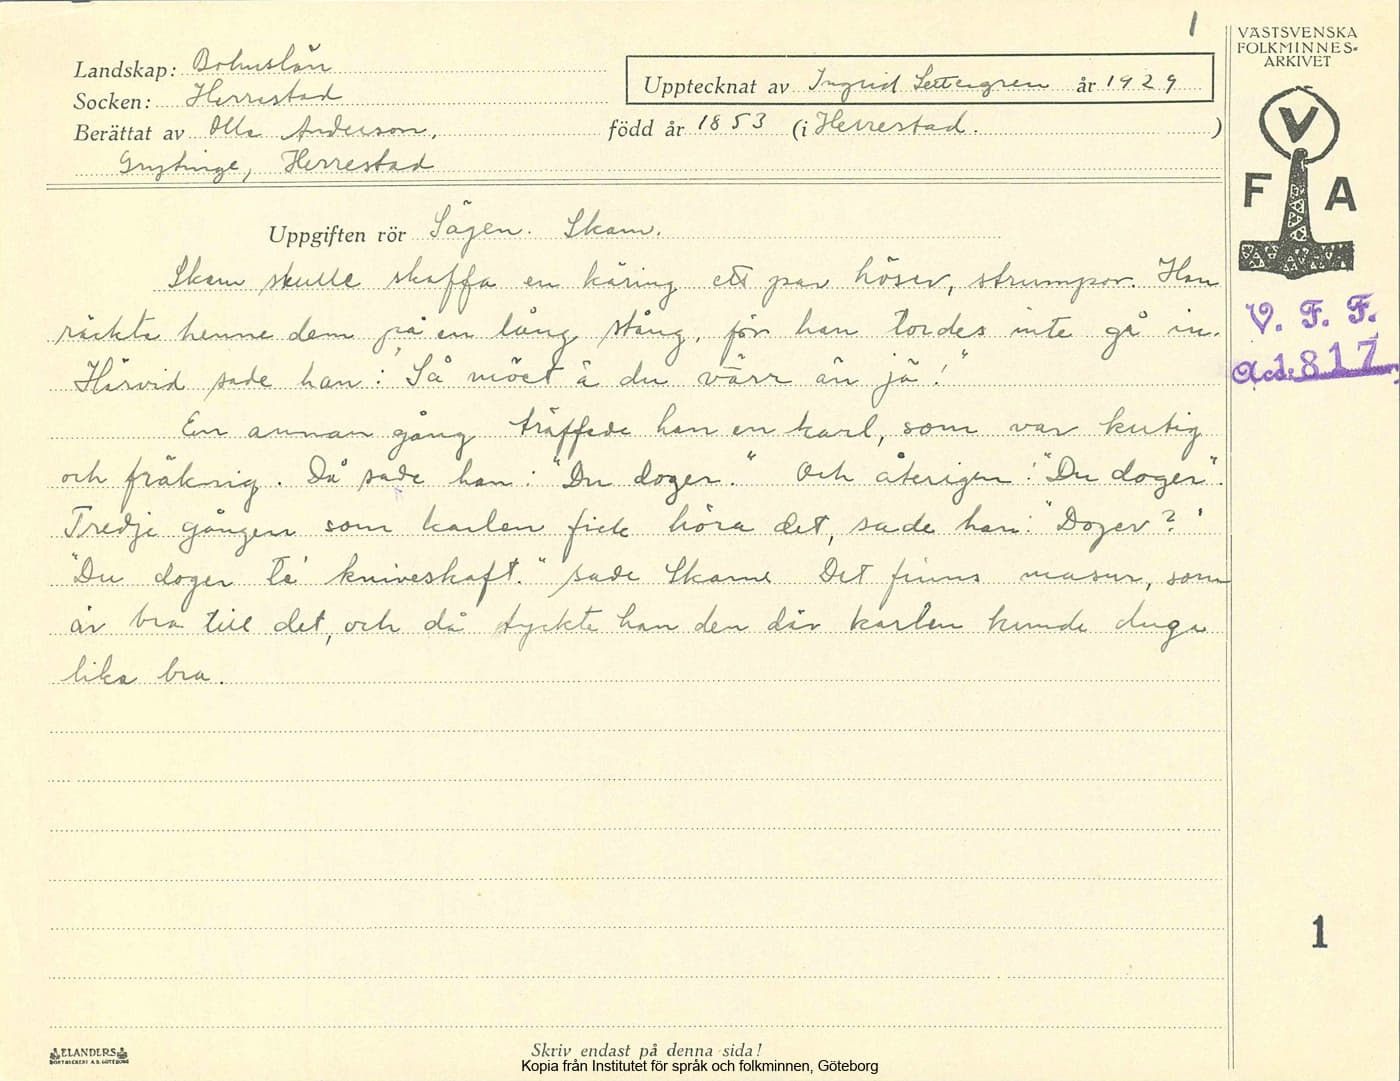 1
VÄSTSVENSKA
FOLKMINNES-
ARKIVET
Landskap: Bohuslän
Socken: Herrestad
Upptecknat av Ingrid Settergren år 1929
Berättat av Olle Anderson, född år 1853 (i Herrestad. )
Grytinge, Herrestad
V
F A
Uppgiften rör Sägen. Skam.
Skam skulle skaffa en käring ett par höser, strumpor. Han
räckte henne dem på en lång stång, för han tordes inte gå in.
Härvid sade han: "Så möet ä du värr än jä!"
V. F. F.
Acc: 1817
En annan gång träffade han en karl, som var kutig
och fräknig. Då sade han: "Du doger." Och återigen: "Du doger".
Tredje gången som karlen fick höra det, sade han: "Doger?"
"Du doger te' kniveskaft." sade Skam. Det finns masur, som
är bra till det, och då tyckte han den där karlen kunde duga
lika bra.
1
ELANDERS
BOKTRYCKERI A.B. GÖTEBORG
Skriv endast på denna sida!
Kopia från Institutet för språk och folkminnen, Göteborg